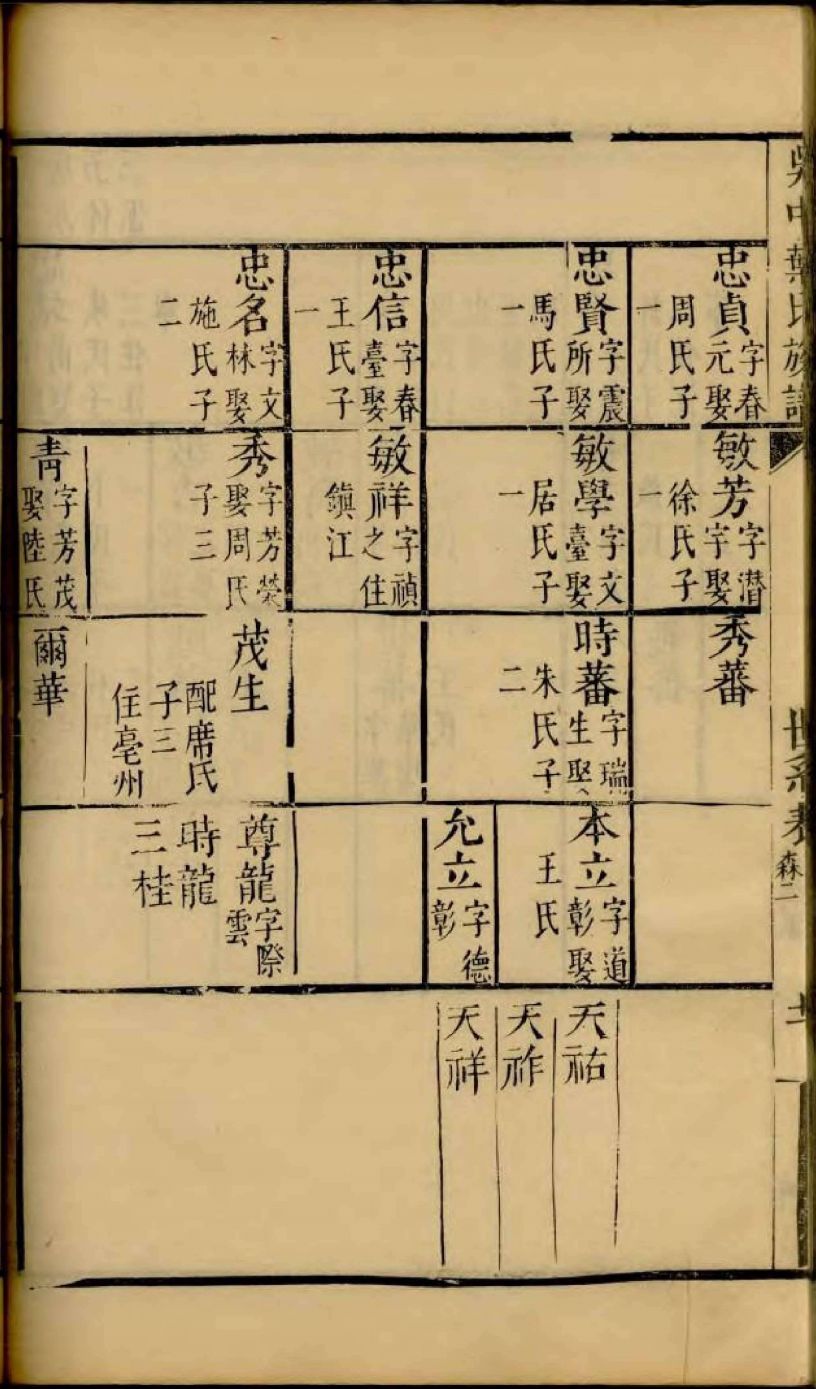 吳中葉氏族譜
世系表
森二
十一
忠貞 字春元娶周氏子一
忠賢 字震所娶馬氏子一
忠信 字春臺娶王氏子一
忠名 字文林娶施氏子二
敏芳 字潛宇娶徐氏子一
敏學 字文臺娶居氏子一
敏祥 字禎之住鎮江
秀 字芳榮娶周氏子三
青 字芳茂娶陸氏
秀蕃
時蕃 字瑞生娶朱氏子二
茂生 配席氏子三住亳州
爾華
本立 字道彰娶王氏
允立 字德彰
尊龍 字際雲
時龍
三桂
天祐
天祚
天祥